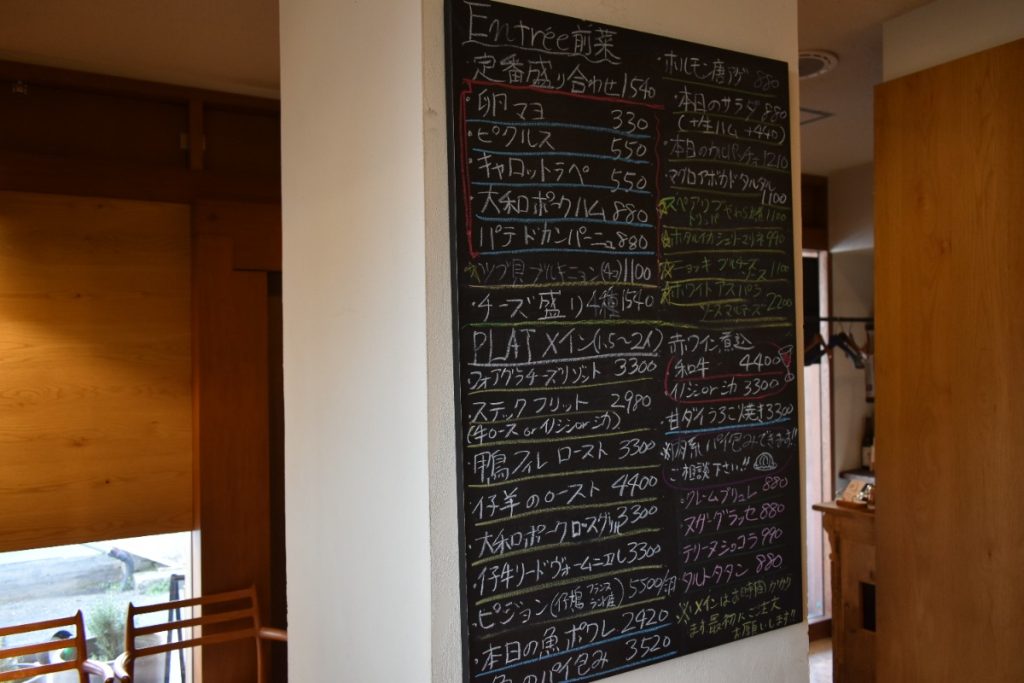 Entrée前菜
・定番盛り合わせ1540
・卵マヨ 330
・ピクルス 550
・キャロットラペ 550
・大和ポークハム 880
パテドカンパーニュ880
ツブ貝ブルギニョン(4コ)1100
・チーズ盛り4種1540
PLAT メイン(1.5~2人)
フォアグラチーズリゾット 3300
・ステックフリット 2980
(牛ロース or イノシシorシカ)
・鴨フィレロースト 3300
・仔羊のロースト 4400
・大和ポークロースグリル3300
・仔牛リードヴォームニエル3300
・ピジョン(仔鳩フランスランド産)5500/羽
・本日の魚ポワレ 2420
魚のパイ包み 3520
・ホルモン唐アゲ 880
・本日のサラダ 880
(+生ハム +440)
・本日のカルパッチョ1210
・マグロアボカドタルタル
1100
スペアリブ やわらか煮1100
ホタルイカ マリネ990
ニョッキ ブルチーズ
ソース 1100
ホワイトアスパラ
ソースマルテーズ2200
赤ワイン煮込
和牛 4400
イノシシorシカ 3300
甘ダイうろこ焼き3300
※肉系パイ包みできます!!
ご相談下さい!!
・クレームブリュレ 880
・スダーグラッセ 880
・テリーヌショコラ 990
・タルトタタン 880
※メインはお時間かかり
ます最初にご注文
お願いします!!